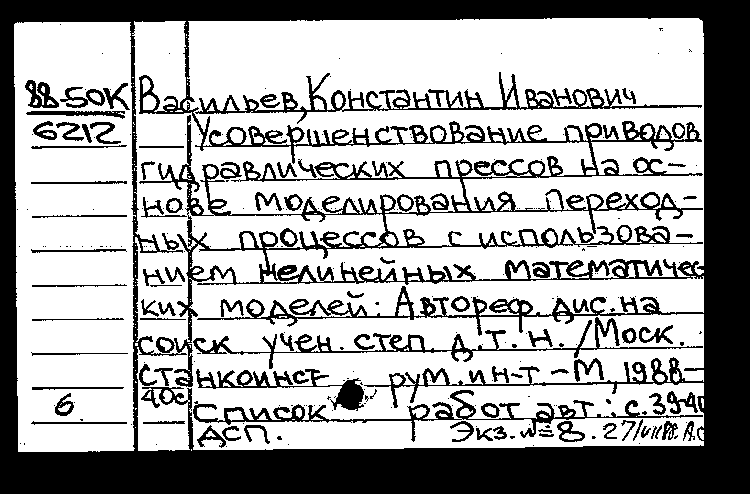 88-50К Васильев, Константин Иванович
6212 Усовершенствование приводов
гидравлических прессов на ос-
нове моделирования переход-
ных процессов с использова-
нием нелинейных математичес
ких моделей: Автореф. дис. на
соиск. учен. степ. д.т.н. /Моск.
станкоинст рум. ин-т. - М, 1988-
6 40с Список работ авт.: с.39-40
ДСП. Экз. №8. 27/VII88.